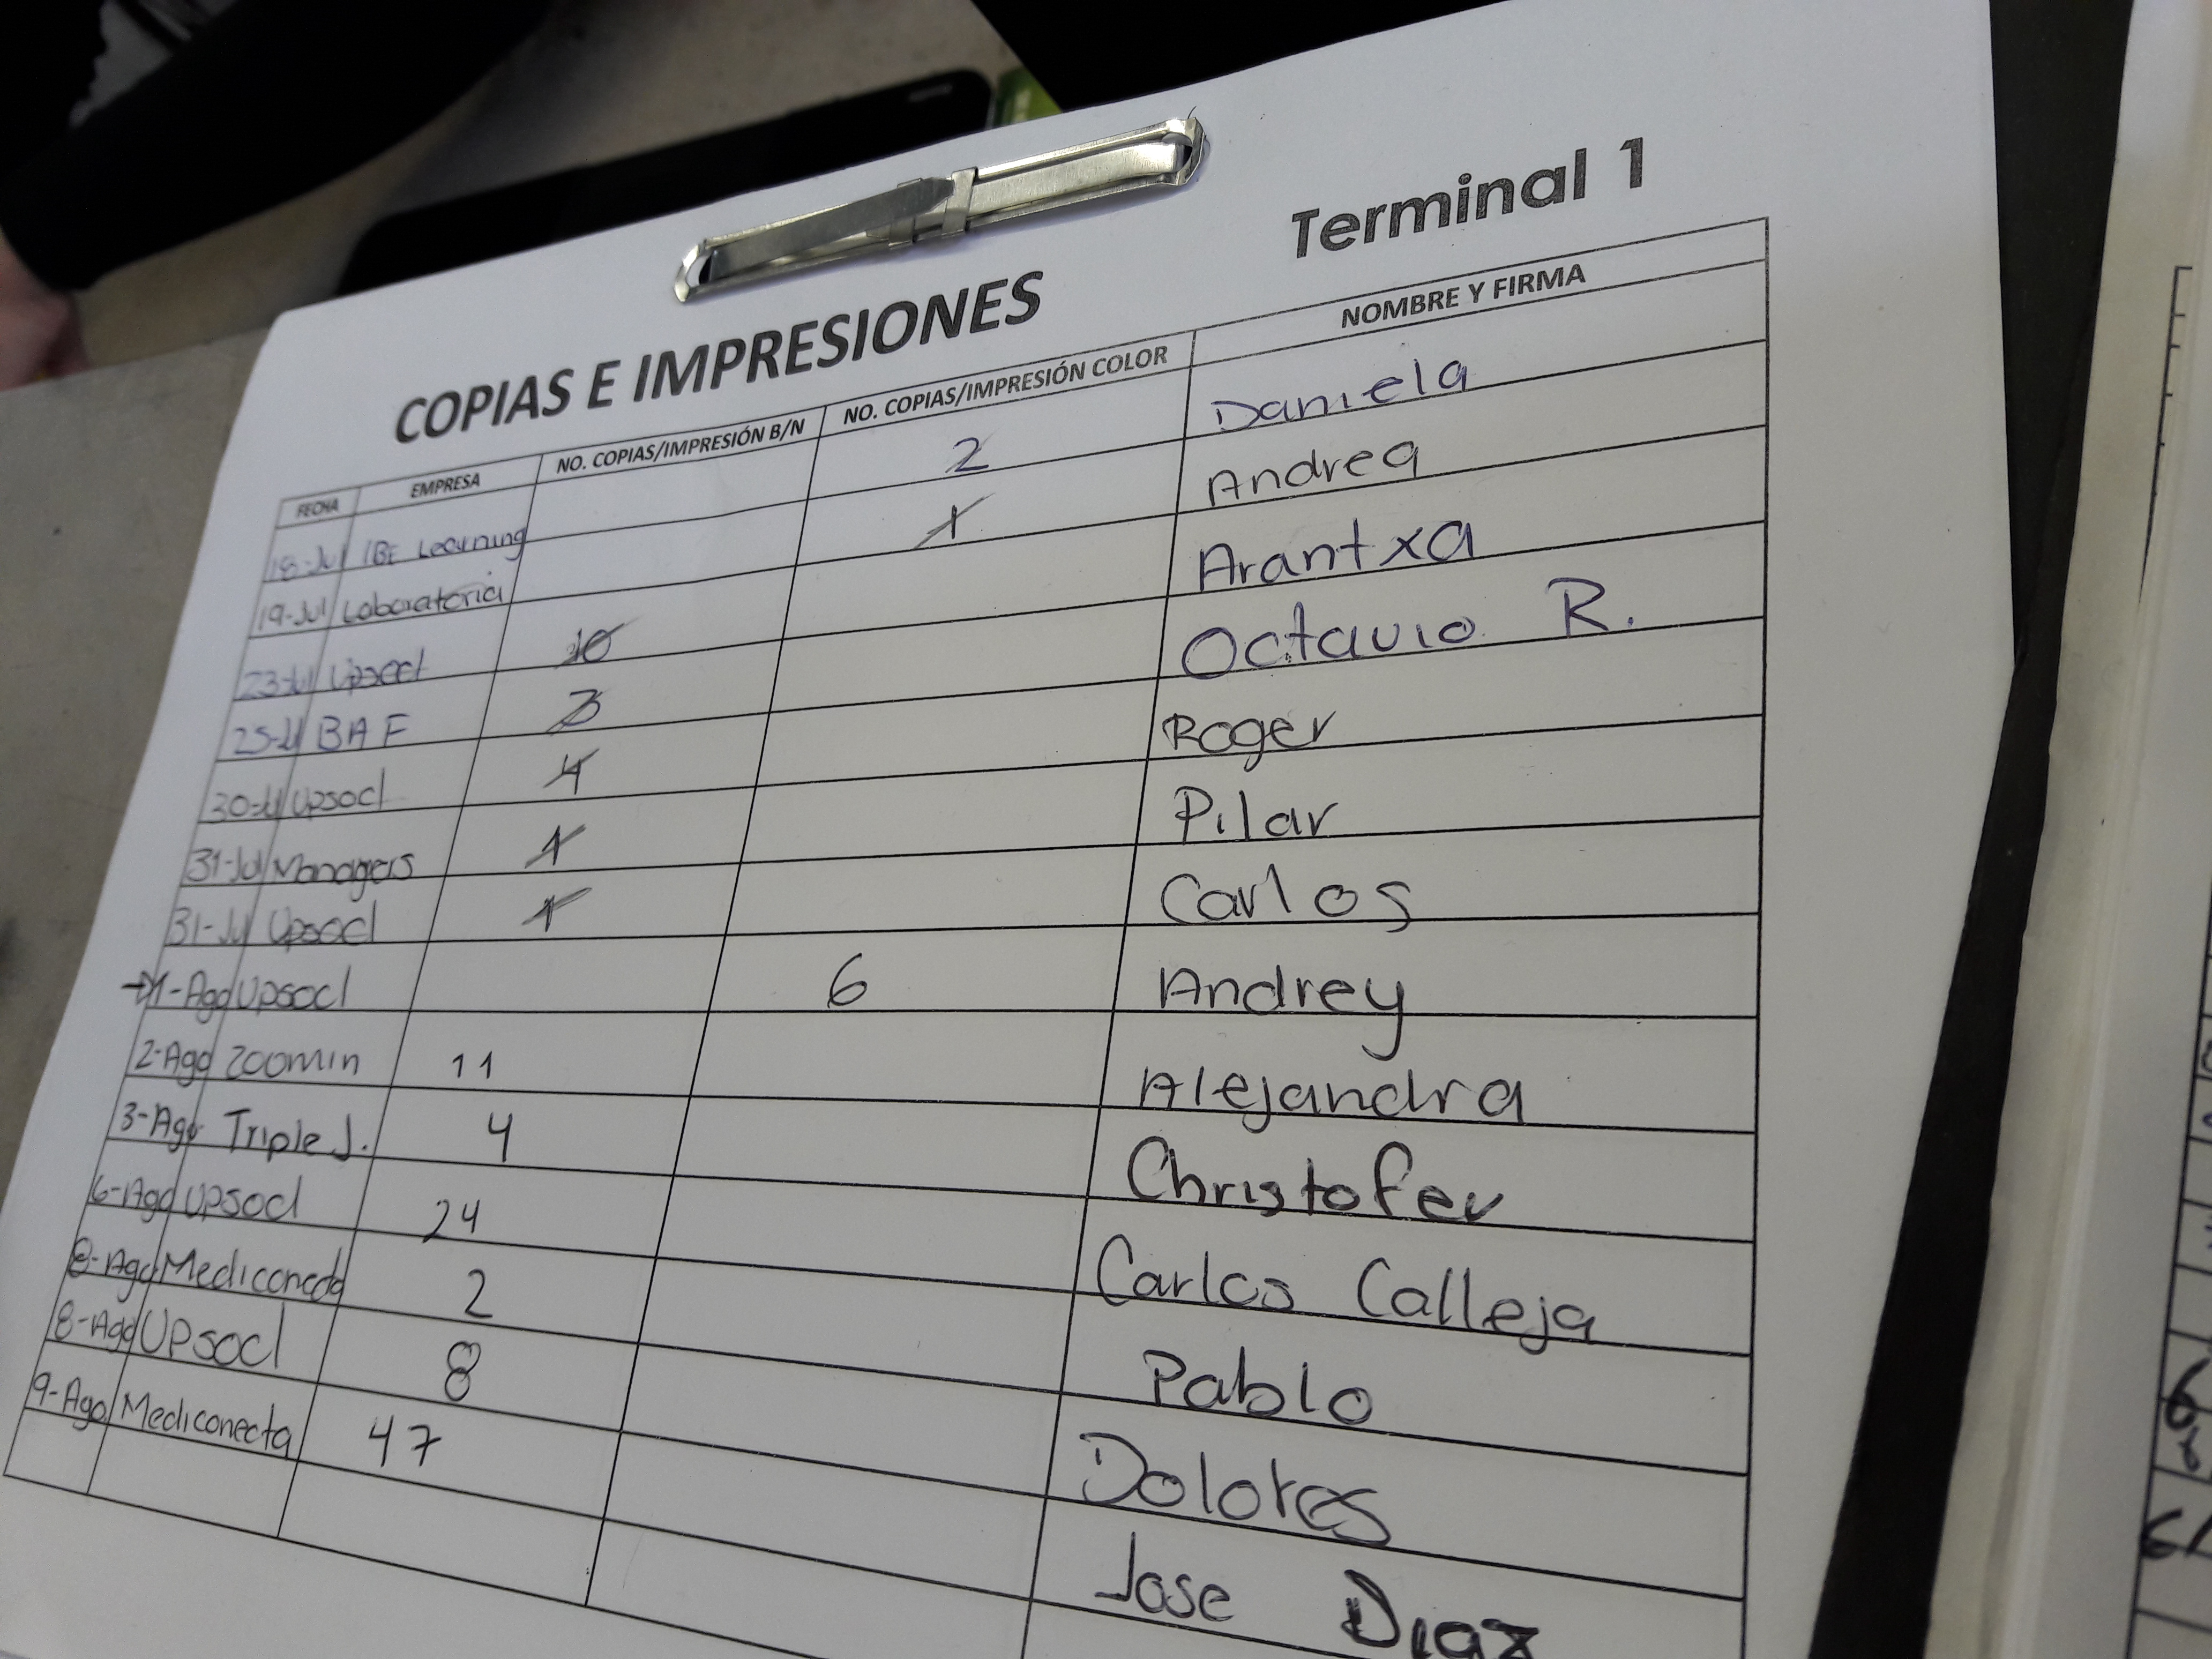 COPIAS E IMPRESIONES Terminal 1
FECHA EMPRESA NO. COPIAS/IMPRESIÓN B/N NO. COPIAS/IMPRESIÓN COLOR NOMBRE Y FIRMA
Learning 2 Daniela
19-Jul Laboratoria 1 Andrea
23-Jul 10 Arantxa
25-Jul BAF 3 Octavio R.
30-Jul Upsocl Roger
31-Jul Managers 1 Pilar
31-Jul Upsocl 1 Carlos
1-Ago Upsocl 6 Andrey
2-Ago Zoomin 11 Alejandra
3-Ago Triple J. 4 Christofer
6-Ago Upsocl 24 Carlos Calleja
8-Ago Mediconecta 2 Pablo
8-Ago Upsocl 8 Dolores
9-Ago Mediconecta 47 Jose Diaz